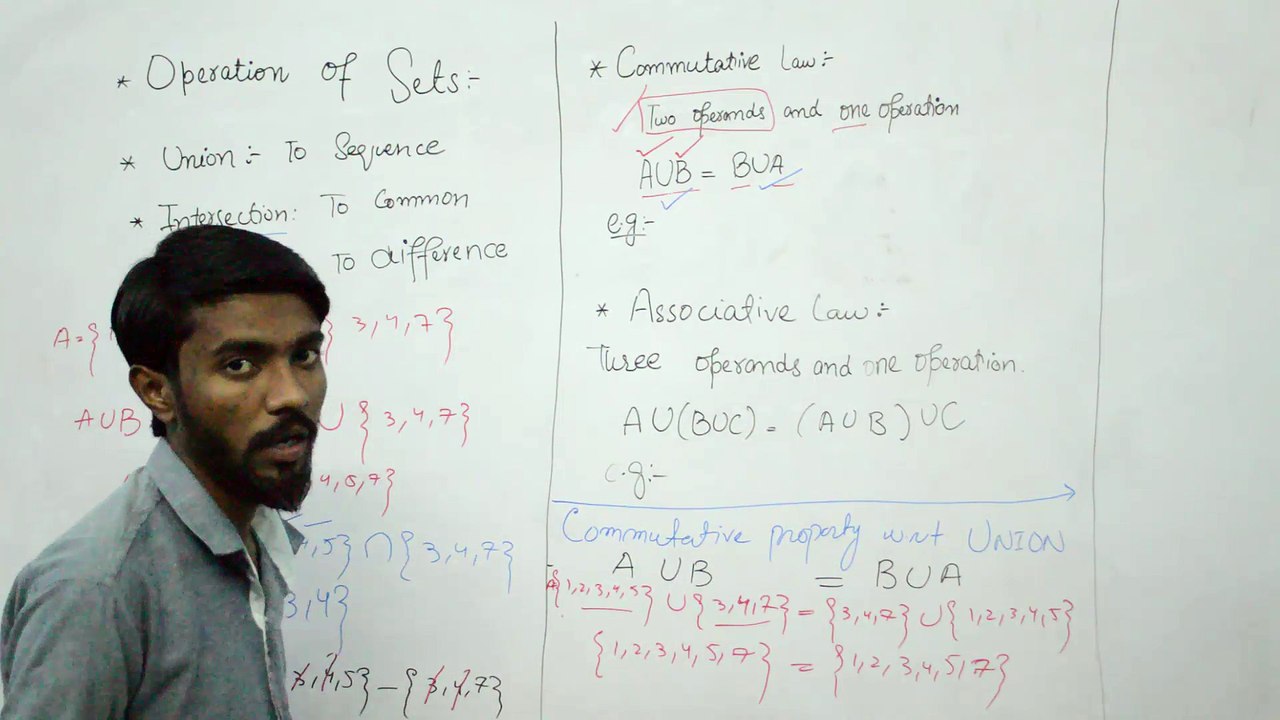 * Operation of Sets:-
* Union:- To Sequence
* Intersection: To Common
To difference
A={ } 3,4,7}
AUB U { 3,4,7}
4,5,7}
,5} ∩ { 3,4,7}
3,4}
3,4,5} - {3,4,7}
* Commutative Law:-
Two operands and one operation
AUB = BUA
e.g:-
* Associative Law:-
Three operands and one operation.
AU(BUC) = (AUB)UC
e.g:-
Commutative property wrt UNION
A U B = BUA
A{1,2,3,4,5} U { 3,4,7} = {3,4,7} U { 1,2,3,4,5}
{1,2,3,4,5,7} = {1,2,3,4,5,7}